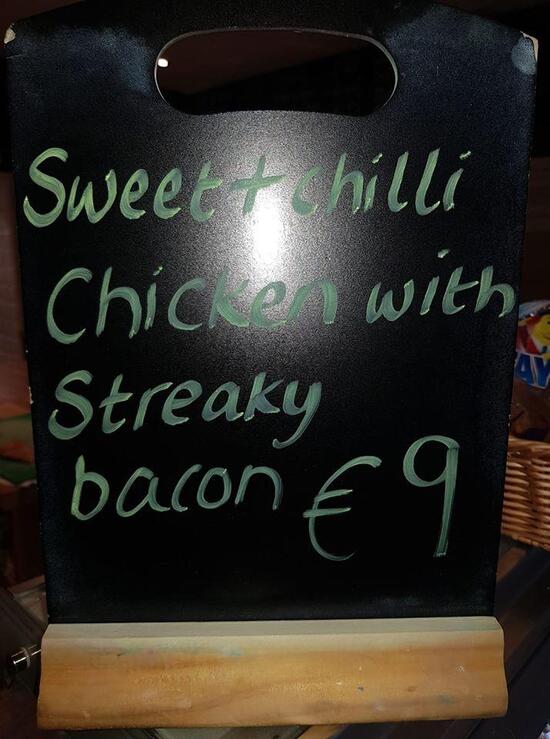 Sweet + chilli
Chicken with
Streaky
bacon € 9
AY